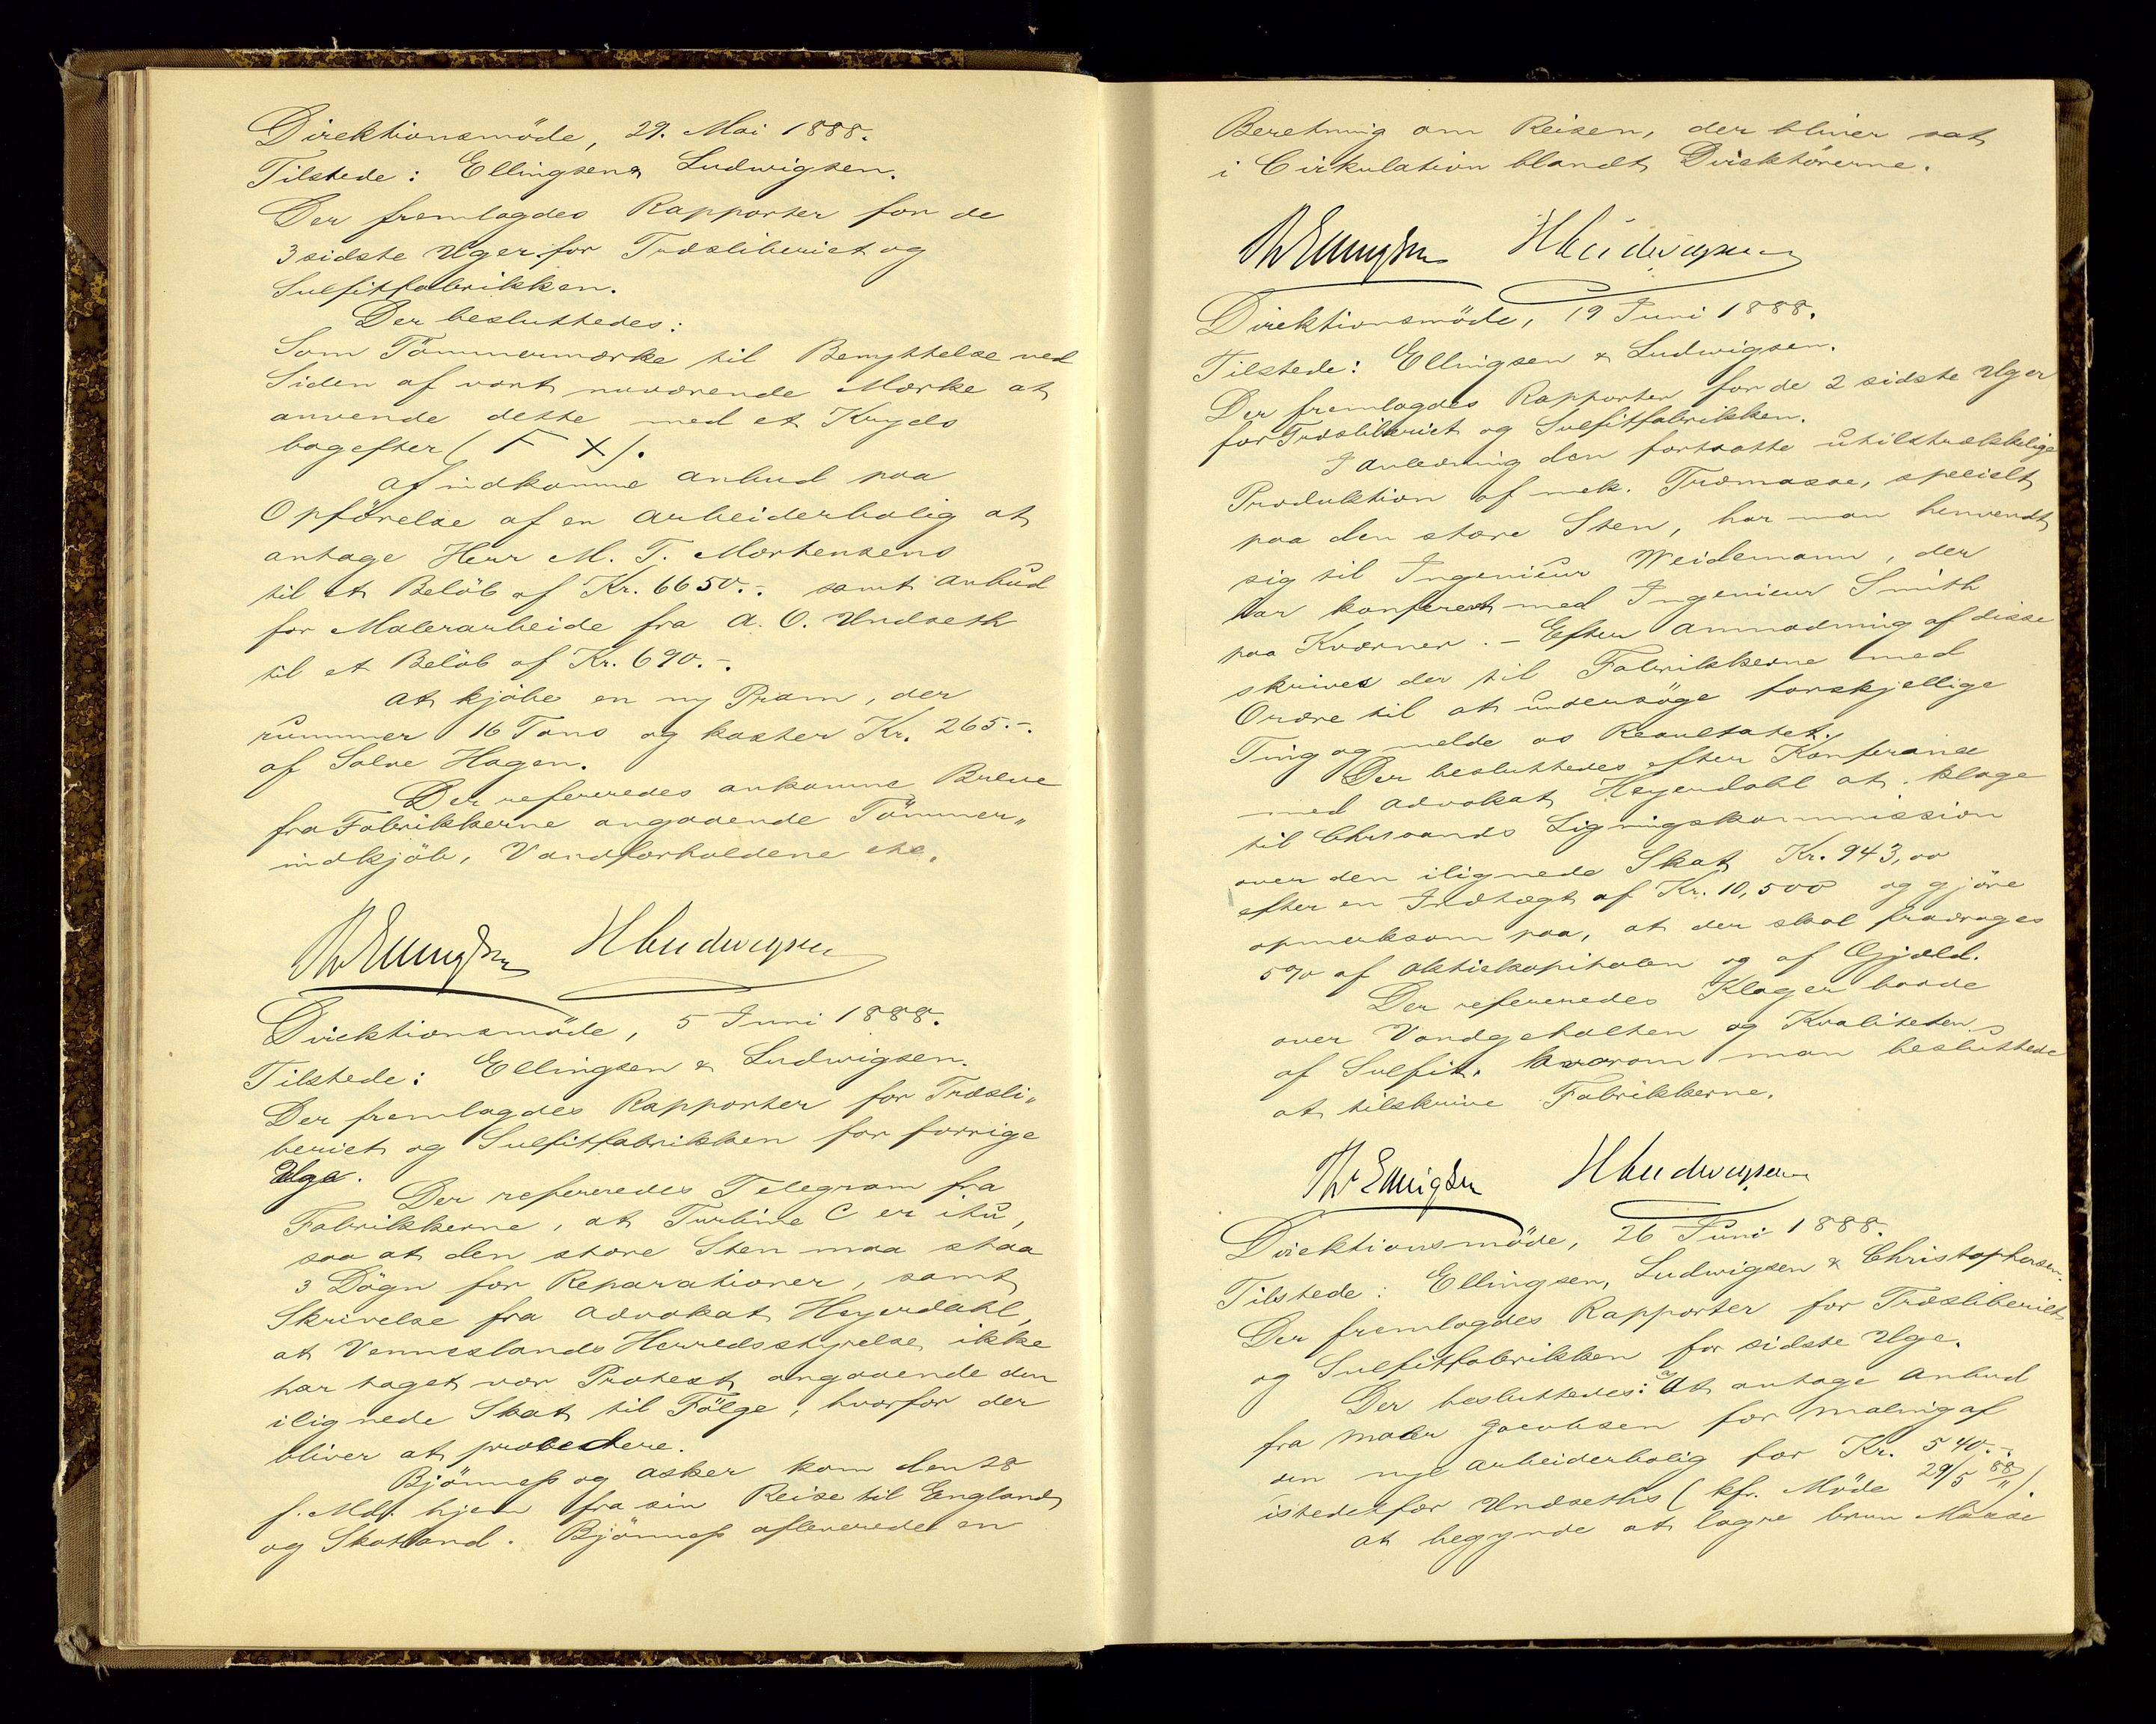 Direktionsmöde, 29. Mai 1888.
Tilstede: Ellingsen & Ludwigsen.
Der fremlagdes Rapporter for de
3 sidste Uger for Træsliberiet og
Sulfitfabrikken.
Der besluttedes:
Som Tömmermærke til Benyttelse ved
Siden af vort nuværende Mærke at
anvende dette med et Kryds
bagefter ( F X ).
Af indkomne Anbud paa
Opförelse af en Arbeiderbolig at
antage Herr M. T. Mortensens
til et Belöb af Kr. 6650.- samt Anbud
for Malerarbeide fra A. O. Undseth
til et Belöb af Kr. 690.-.
At kjöbe en ny Pram, der
rummer 16 Tons og koster Kr. 265.-.
af Salve Hagen.
Der refereredes ankomne Breve
fra Fabrikkerne angaaende Tömmer„
indkjöb, Vandforholdene etc.
Th Ellingsen HLudwigsen
Direktionsmöde, 5 Juni 1888.
Tilstede: Ellingsen & Ludwigsen.
Der fremlagdes Rapporter for Træsli„
beriet og Sulfitfabrikken for forrige
Uge.
Der refereredes Telegram fra
Fabrikkerne, at Turbine C er itu,
saa at den store Sten maa staa
3 Dögn for Reparationer, samt
Skrivelse fra Advokat Heyerdahl,
at Venneslands Herredsstyrelse ikke
har taget vor Protest angaaende den
ilignede Skat til Fölge, hvorfor der
bliver at procedere.
Bjönness og Asker kom den 28
f. Md. hjem fra sin Reise til England
og Skotland. Bjönness afleverede en
Beretning om Reisen, der bliver sat
i Cirkulation blandt Direktörerne.
Th Ellingsen HLudwigsen
Direktionsmöde, 19 Juni 1888.
Tilstede: Ellingsen & Ludwigsen.
Der fremlagdes Rapporter for de 2 sidste Uger
for Træsliberiet og Sulfitfabrikken.
I Anledning den fortsatte utilstrækkelige
Produktion af mek. Træmasse, specielt
paa den store Sten, har man henvendt
sig til Ingeniеur Weidemann, der
har konfereret med Ingenieur Smith
paa Kværner. - Efter Anmodning af disse
skrives der til Fabrikkerne med
Ordre til at undersöge forskjellige
Ting og melde os Resultatet.
Der besluttedes efter Konferanse
med Advokat Heyerdahl at klage
til Chrsands Ligningskommission
over den ilignede Skat Kr. 943,00
efter en Indtægt af Kr. 10,500 og gjöre
opmerksom paa, at der skal fradrages
5% af Aktiekapitalen og af Gjæld.
Der refereredes Klager baade
over Vandgehalten og Kvaliteten
af Sulfit, hvorom man besluttede
at tilskrive Fabrikkerne.
Th Ellingsen HLudwigsen
Direktionsmöde, 26 Juni 1888.
Tilstede: Ellingsen, Ludwigsen & Christophersen.
Der fremlagdes Rapporter for Træsliberiet
og Sulfitfabrikken for sidste Uge.
Der besluttedes: At antage Anbud
fra Maler Jacobsen for Maling af
den nye Arbeiderbolig for Kr. 540.-
istedetfor Undseths ( kfr. Möde 29/5 88 ).
at begynde at lagre brun Masse